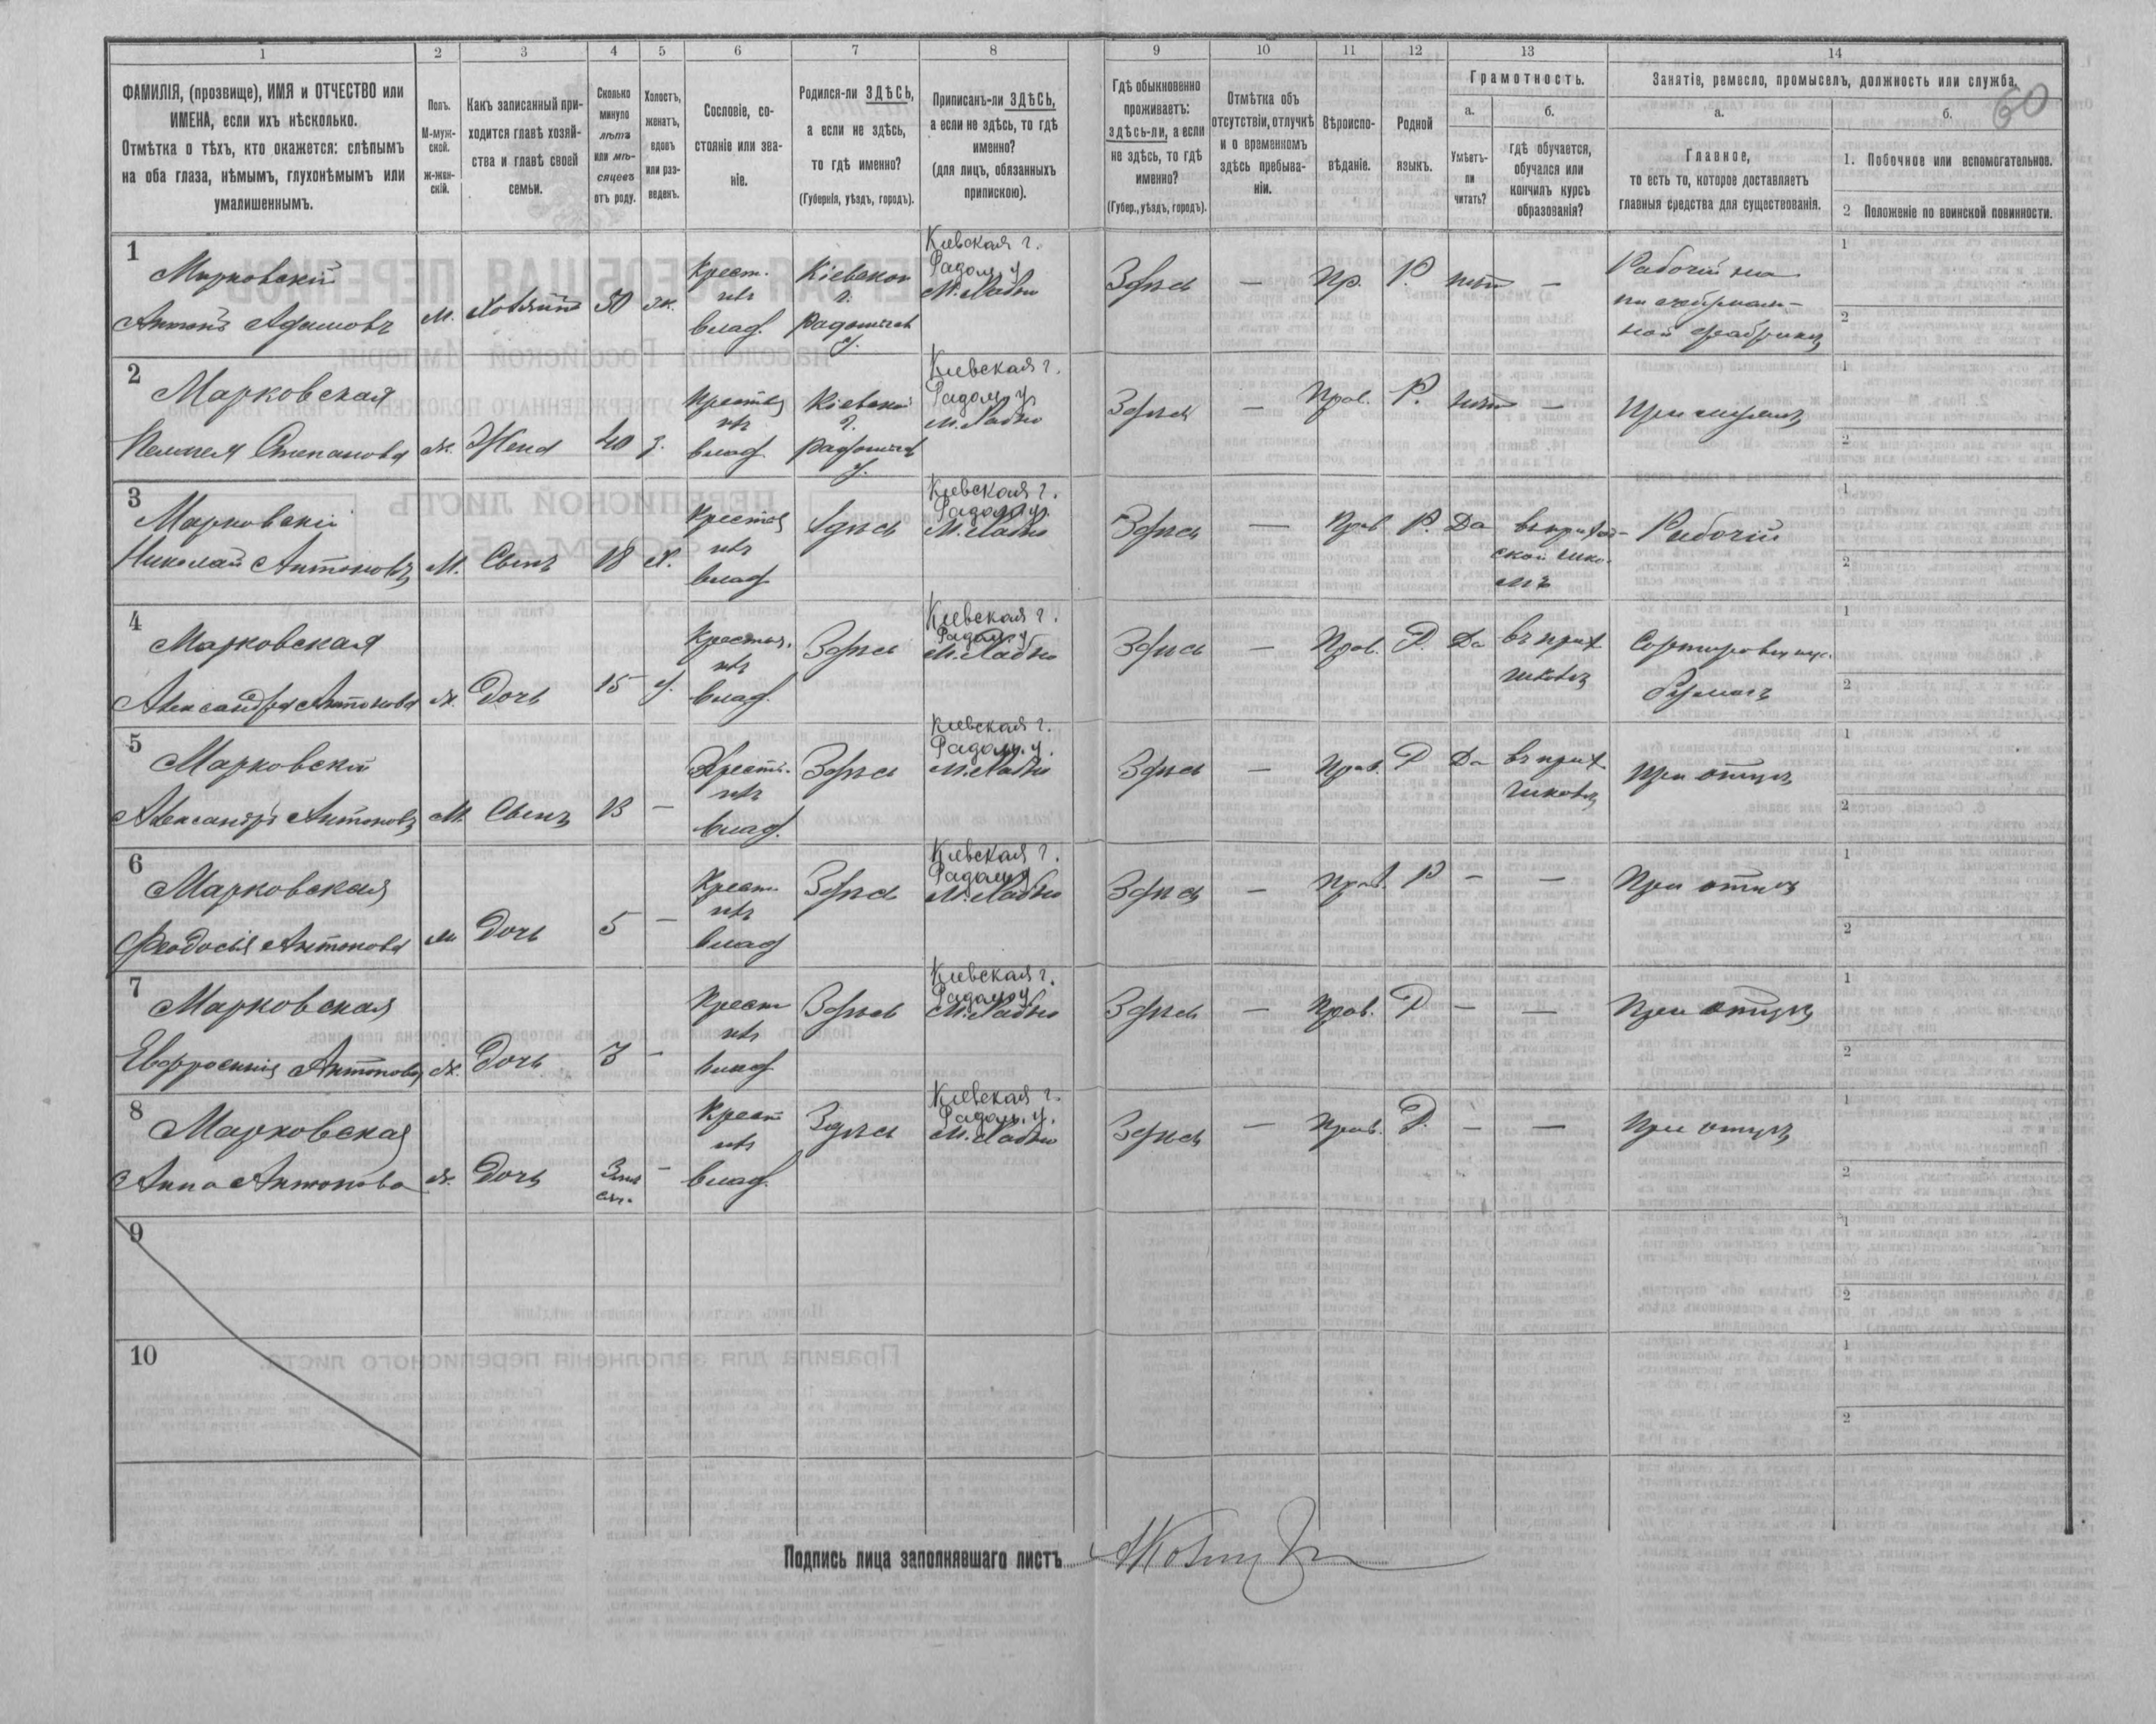 1
2
3
4
5
6
7
8
9
10
11
12
13
14
ФАМИЛІЯ, (прозвище), ИМЯ и ОТЧЕСТВО или
ИМЕНА, если ихъ нѣсколько.
Отмѣтка о тѣхъ, кто окажется: слѣпымъ
на оба глаза, нѣмымъ, глухонѣмымъ или
умалишеннымъ.
Полъ.
М-муж-
ской.
ж-жен-
скій.
Какъ записанный при-
ходится главѣ хозяй-
ства и главѣ своей
семьи.
Сколько
минуло
лѣтъ
или мѣ-
сяцевъ
отъ роду.
Холостъ,
женатъ,
вдовъ
или раз-
веденъ.
Сословіе, со-
стояніе или зва-
ніе.
Родился-ли ЗДѢСЬ,
а если не здѣсь,
то гдѣ именно?
(Губернія, уѣздъ, городъ).
Приписанъ-ли ЗДѢСЬ,
а если не здѣсь, то гдѣ
именно?
(для лицъ, обязанныхъ
припискою).
Гдѣ обыкновенно
проживаетъ:
здѣсь-ли, а если
не здѣсь, то гдѣ
именно?
(Губер., уѣздъ, городъ).
Отмѣтка объ
отсутствіи, отлучкѣ
и о временномъ
здѣсь пребыва-
ніи.
Вѣроиспо-
вѣданіе.
Родной
языкъ.
Грамотность.
а.
Умѣетъ-
ли
читать?
б.
гдѣ обучается,
обучался или
кончилъ курсъ
образованія?
Занятіе, ремесло, промыселъ, должность или служба.
60
а.
Главное,
то есть то, которое доставляетъ
главныя средства для существованія.
б.
1. Побочное или вспомогательное.
2 Положеніе по воинской повинности.
1
Марковскій
Антонъ Адамовъ
М. Хозяинъ 50 ж.
Крест.
изъ
влад.
Кіевской
г.
Радомысл
у.
Кіевская г.
Радом. у
Здѣсь — Пр. Р. нѣтъ —
Рабочій на
фабрикѣ
1
2
2
Марковская
Пелагея Степанова
ж. Жена 40 з.
изъ
влад.
Кіевской
г.
Радомысл
у.
Кіевская г.
Радом. у
Здѣсь — Прав. Р. нѣтъ —
При мужѣ
1
2
3
Марковскій
Николай Антоновъ
М. Сынъ 18 х.
изъ
влад
Здѣсь
Кіевская г.
Радом. у.
Здѣсь — Прав Р. Да
въ приход-
ской шко-
лѣ
Рабочій
1
2
4
Марковская
Александра Антонова
ж. Дочь 15
изъ
влад.
Здѣсь
Кіевская г.
Радом. у
Здѣсь — Прав. Р. Да
въ прих
школѣ
1
2
5
Марковскій
Александръ Антоновъ
М. Сынъ 13 —
изъ
влад.
Здѣсь
Кіевская г.
Радом. у.
Здѣсь — Прав. Р Да
въ прих
школѣ
При отцѣ
1
2
6
Марковская
Феодосія Антонова
Дочь 5 —
Крест
изъ
влад
Здѣсь
Кіевская г.
Радом у
Здѣсь — Прав. Р — —
При отцѣ
1
2
7
Марковская
Евфросинія Антонова
ж. Дочь 3 —
Крест
изъ
влад
Здѣсь
Кіевская г.
Радом у
Здѣсь — Прав. Р — —
При отцѣ
1
2
8
Марковская
Анна Антонова
ж. Дочь —
Крест
изъ
влад.
Здѣсь
Кіевская г.
Радом. у.
Здѣсь — Прав. Р. — —
При отцѣ
1
2
9
1
2
10
1
2
Подпись лица заполнявшаго листъ